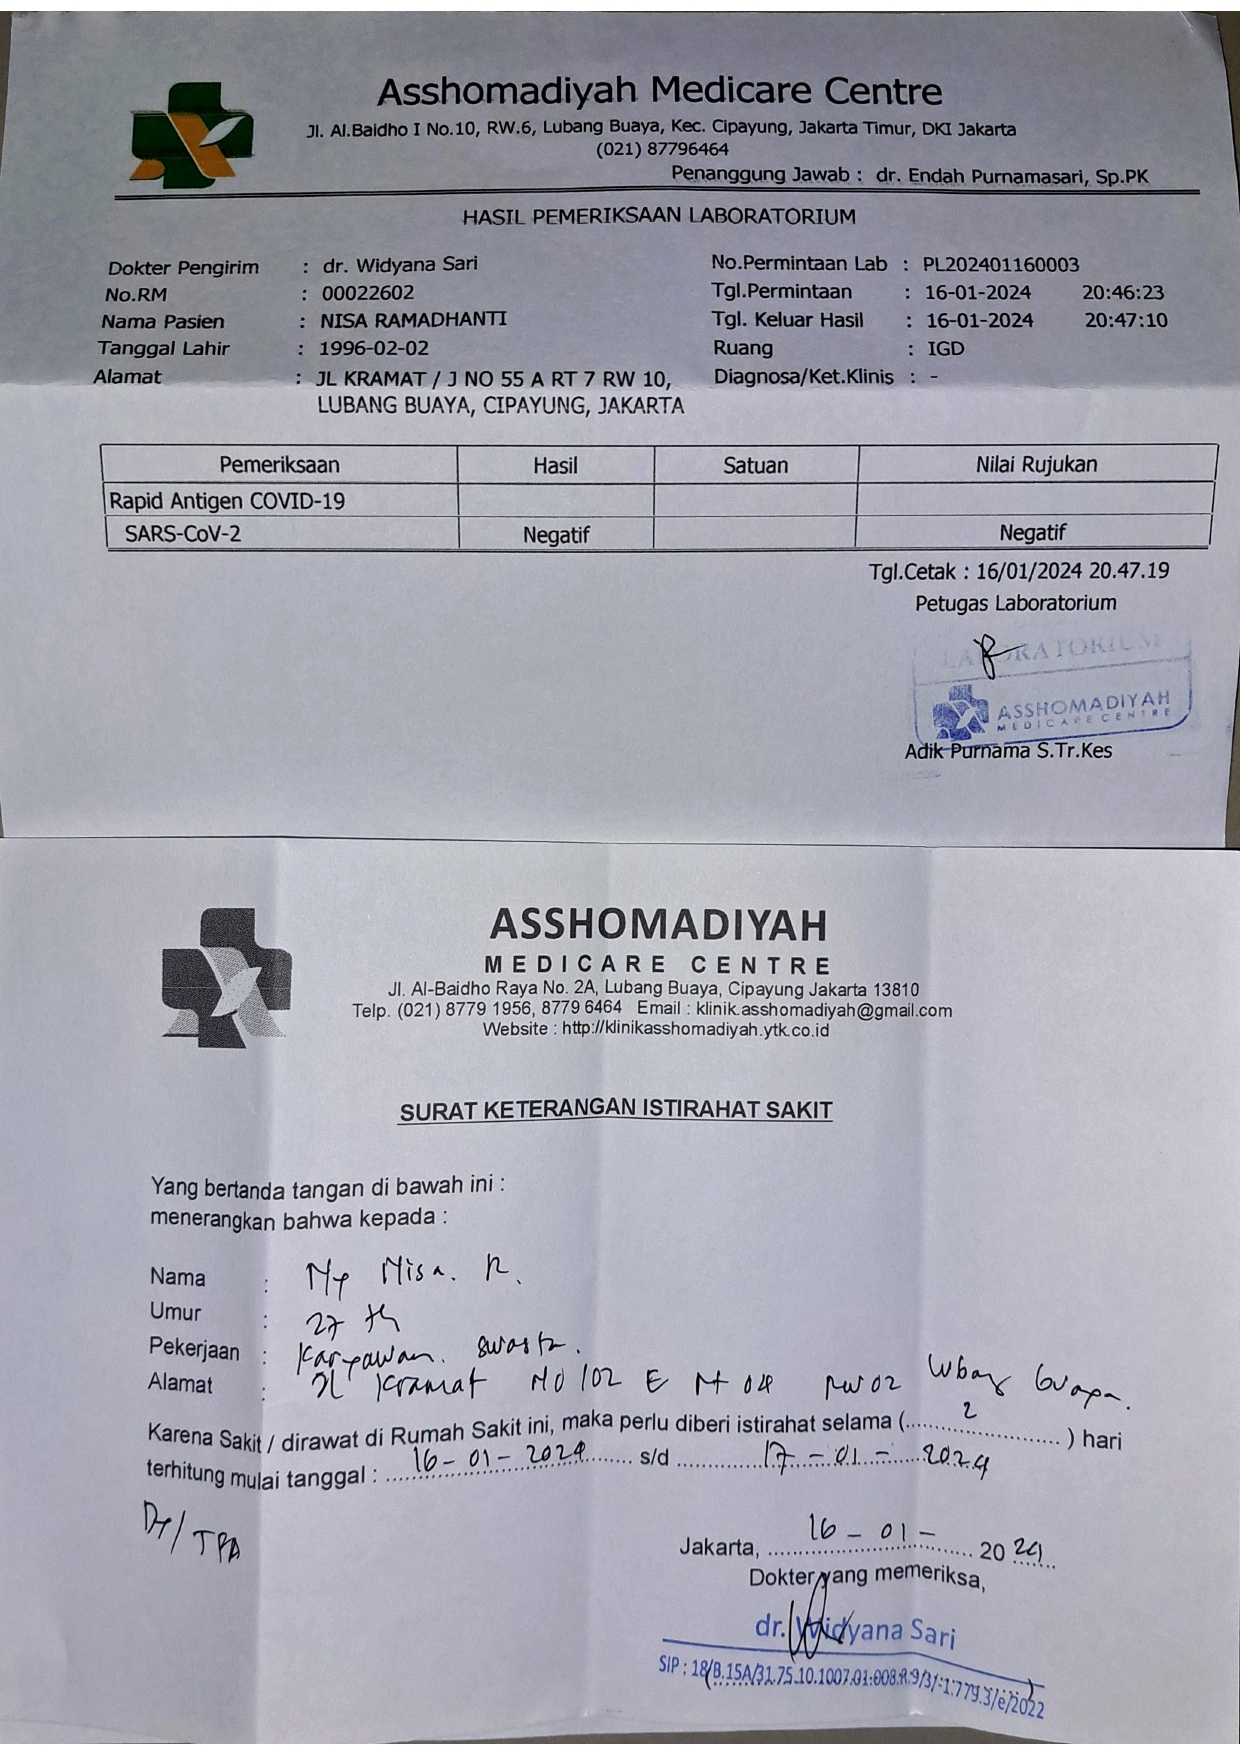 Asshomadiyah Medicare Centre
Jl. Al.Baidho I No.10, RW.6, Lubang Buaya, Kec. Cipayung, Jakarta Timur, DKI Jakarta
(021) 87796464
Penanggung Jawab : dr. Endah Purnamasari, Sp.PK
HASIL PEMERIKSAAN LABORATORIUM
Dokter Pengirim : dr. Widyana Sari No.Permintaan Lab : PL202401160003
No.RM : 00022602 Tgl.Permintaan : 16-01-2024 20:46:23
Nama Pasien : NISA RAMADHANTI Tgl. Keluar Hasil : 16-01-2024 20:47:10
Tanggal Lahir : 1996-02-02 Ruang : IGD
Alamat : JL KRAMAT / J NO 55 A RT 7 RW 10, Diagnosa/Ket.Klinis : -
LUBANG BUAYA, CIPAYUNG, JAKARTA
Pemeriksaan Hasil Satuan Nilai Rujukan
Rapid Antigen COVID-19
SARS-CoV-2 Negatif Negatif
Tgl.Cetak : 16/01/2024 20.47.19
Petugas Laboratorium
LABORATORIUM
ASSHOMADIYAH
MEDICARE CENTRE
Adik Purnama S.Tr.Kes
ASSHOMADIYAH
MEDICARE CENTRE
Jl. Al-Baidho Raya No. 2A, Lubang Buaya, Cipayung Jakarta 13810
Telp. (021) 8779 1956, 8779 6464 Email : klinik.asshomadiyah@gmail.com
Website : http://klinikasshomadiyah.ytk.co.id
SURAT KETERANGAN ISTIRAHAT SAKIT
Yang bertanda tangan di bawah ini :
menerangkan bahwa kepada :
Nama : Ny Nisa. R.
Umur : 27 th
Pekerjaan : Karyawan. swasta.
Alamat : Jl Kramat NO 102 E Rt 04 RW 02 Lubang Buaya.
Karena Sakit / dirawat di Rumah Sakit ini, maka perlu diberi istirahat selama (.....2.....) hari
terhitung mulai tanggal : 16-01-2024 s/d 17-01-2024
Jakarta, 16-01- 20 24
Dokter yang memeriksa,
dr. Widyana Sari
SIP : 18/B.15A/31.75.10.1007.01.008.R.9/3/-1.779.3/e/2022